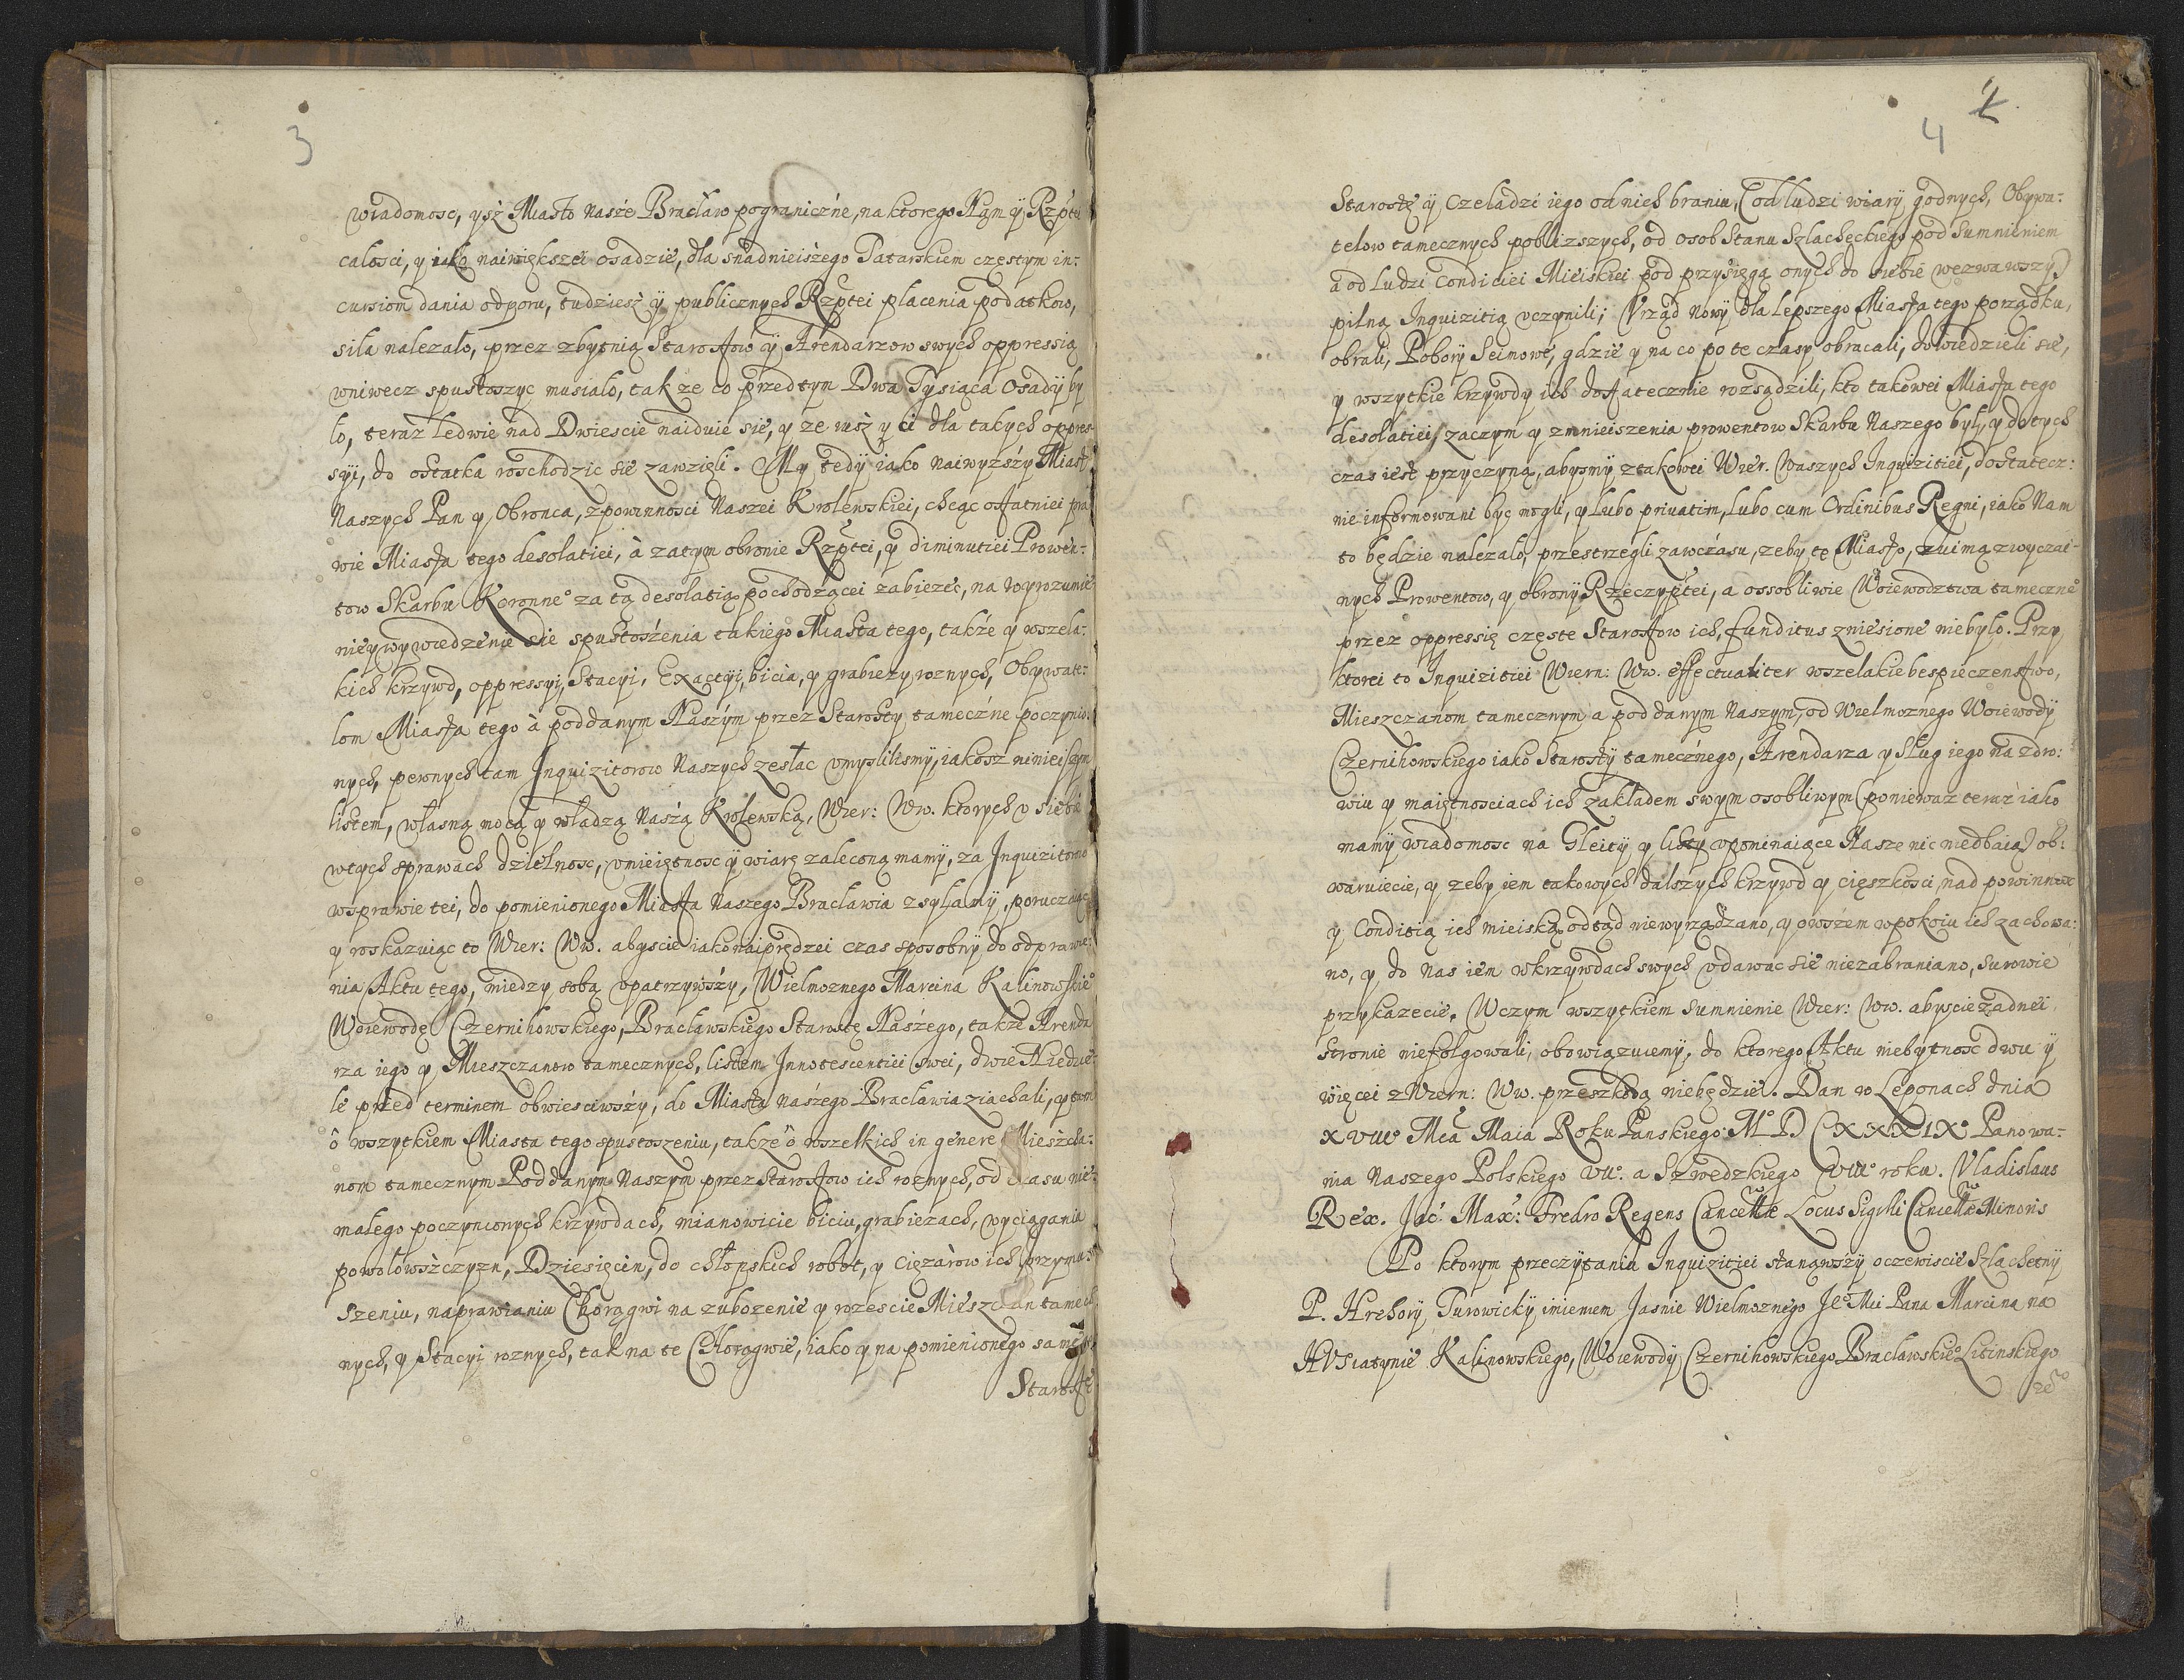 3
wiadomosc, ysz Miasto nasze Bracław pograniczne, na ktorego Nam ÿ Rzptei
całosci, y iako naiwiększei osadzie, dla snadnieiszego Tatarskiem częstym in:
cursiom dania odporu, tudziesz ÿ publicznych Rzptei placenia podatkow,
siła nalezało, przez zbytnią Starostow ÿ Arendarzow swych oppressią
wniwecz spustoszyc musiało, tak ze co przedtym Dwa Tysiąca Osadÿ by
ło, teraz ledwie nad Dwiescie naiduie sie, y ze iusz y ci dla takych oppres
syi, do ostatka roschodzic sie zawzięli. My tedÿ iako naiwyzszÿ Miast
Naszych Pan y Obronca, z powinnosci Naszei Krolewskiei, chcąc ostatniei pra
wie Miasta tego desolatiei, à zatym obronie Rzptei, y diminutiei Prowen:
tow Skarbu Koronne° za tą desolatią pochodzącei zabiezec, na wyrozumie
nie y wywiedzenie sie spustoszenia takiego Miasta tego, takze y wszela:
kich krzywd, oppressyi, Stacyi, Exactÿi, bicia, y grabiezy roznych, Obywate:
lom Miasta tego à poddanym Naszÿm przez Starosty tameczne poczynio:
nych, pewnych tam Inquizitorow Naszych zesłac umyslilismÿ, iakosz ninieiszym
listem, własną mocą y władzą Naszą Krolewską, Wier: Ww. ktorych v siebie
w tych sprawach dzielnosc, vmieiętnosc ÿ wiarę zaleconą mamÿ, za Inquizitorow
w sprawie tei, do pomienionego Miasta Naszego Bracławia zsylamÿ, poruczaiąc
y roskazuiąc to Wier: Ww. abyscie iako naiprędzei czas sposobnÿ do odprawie:
nia Aktu tego, miedzy sobą vpatrzywszy, Wielmoznego Marcina Kalinowskie°
Woiewodę Czernihowskiego, Bracławskiego Starostę Naszego, takze Arenda
rza iego y Mieszczanow tamecznych, listem Innotescentiei swei, dwie Niedzie:
le przed terminem obwiesciwszÿ, do Miasta naszego Bracławia ziachali, y tam
ô wszytkiem Miasta tego spustoszeniu, takze ô wszelkich in genere Mieszcza:
nom tamecznym Poddanym Naszym przez Starostow ich roznych, od czasu nie:
małego poczynionych krzywdach, mianowicie biciu, grabiezach, wyciąganiu
powołowszczyzn, Dziesięcin, do chłopskich robot, y cięzarow ich przymu:
szeniu, naprawianiu Chorągwi na zubozenie y rozescie Mieszczan tamecz
nych, y Stacyi roznych, tak na te Chorągwie, iako y na pomienionego samego
Starostę
4
Starostę ÿ Czeladzi iego od nich braniu, (od ludzi wiary godnych, Obywa:
telow tamecznych poblizszych, od osob Stanu Szlacheckiego pod sumnieniem
a od ludzi Condiciei Mieiskiei pod przysięgą onych do siebie wezwawszy)
pilną Inquizitią vczynili; Vrząd nowÿ dla lepszego Miasta tego porządku,
obrali, Poborÿ Seimowe, gdzie y na co po te czasy obracali, dowiedzieli sie,
y wszytkie krzywdy ich dostatecznie rozsądzili, kto takowei Miasta tego
desolatiei, zaczym y zmnieiszenia prowentow Skarbu Naszego był, y do tych
czas iest przyczyną, abysmÿ z takowei Wier. Waszych Inquizitiei, dostatecz:
nie informowani byc mogli, y lubo priuatim, lubo cum Ordinibus Regni, iako Nam
to będzie nalezało, przestrzegli zawczasu, zeby te Miasto, z uimą zwyczai-
nych Prowentow, y obronÿ Rzeczyptei, a ossobliwie Woiewodztwa tameczne°
przez oppressię częste Starostow ich, funditus zniesione niebyło. Przy
ktorei to Inquizitiei Wiern: Ww. effectualiter wszelakie bespieczenstwo,
Mieszczanom tamecznym a poddanym Naszym, od Wielmoznego Woiewodÿ
Czernihowskiego iako Starostÿ tamecznego, Arendarza y Sług iego na zdro:
wiu y maiętnosciach ich zakładem swym osobliwym (poniewaz teraz iako
mamÿ wiadomosc na Gleitÿ y listy vpominaiące Nasze nic niedbaią) ob:
waruiecie, y zeby iem takowych dalszych krzywd y cięszkosci nad powinnosc
y Conditią ich mieiską odtąd niewyrządzano, y owszem w pokoiu ich zachowa:
no, y do nas iem w krzywdach swych vdawac sie niezabraniano, surowie
przykazecie. W czym wszytkiem sumnienie Wier: Ww. abyscie zadnei
stronie niefolgowali, obowiązuiemÿ, do ktorego Aktu niebytnosc dwu ÿ
więcei z Wiern: Ww. przeszkodą niebędzie. Dan w Leponach dnia
XVIII° Mca Maia Roku Panskiego M° D C XXXIX° Panowa-
nia Naszego Polskiego VII°. a Szwedzkiego VIII° roku. Vladislaus
Rex. Jac: Max: Fredro Regens Cancellæ Locus Sigilli Cancellæ Minoris
Po ktorym przeczÿtaniu Inquizitiei stanąwszÿ oczewiscie Szlachetnÿ
P. Hrehorÿ Turowickÿ imieniem Jasnie Wielmoznego Je° Mci Pana Marcina na
HVSiatynie Kalinowskiego, Woiewodÿ Czernihowskiego Bracławskie° Litinskiego